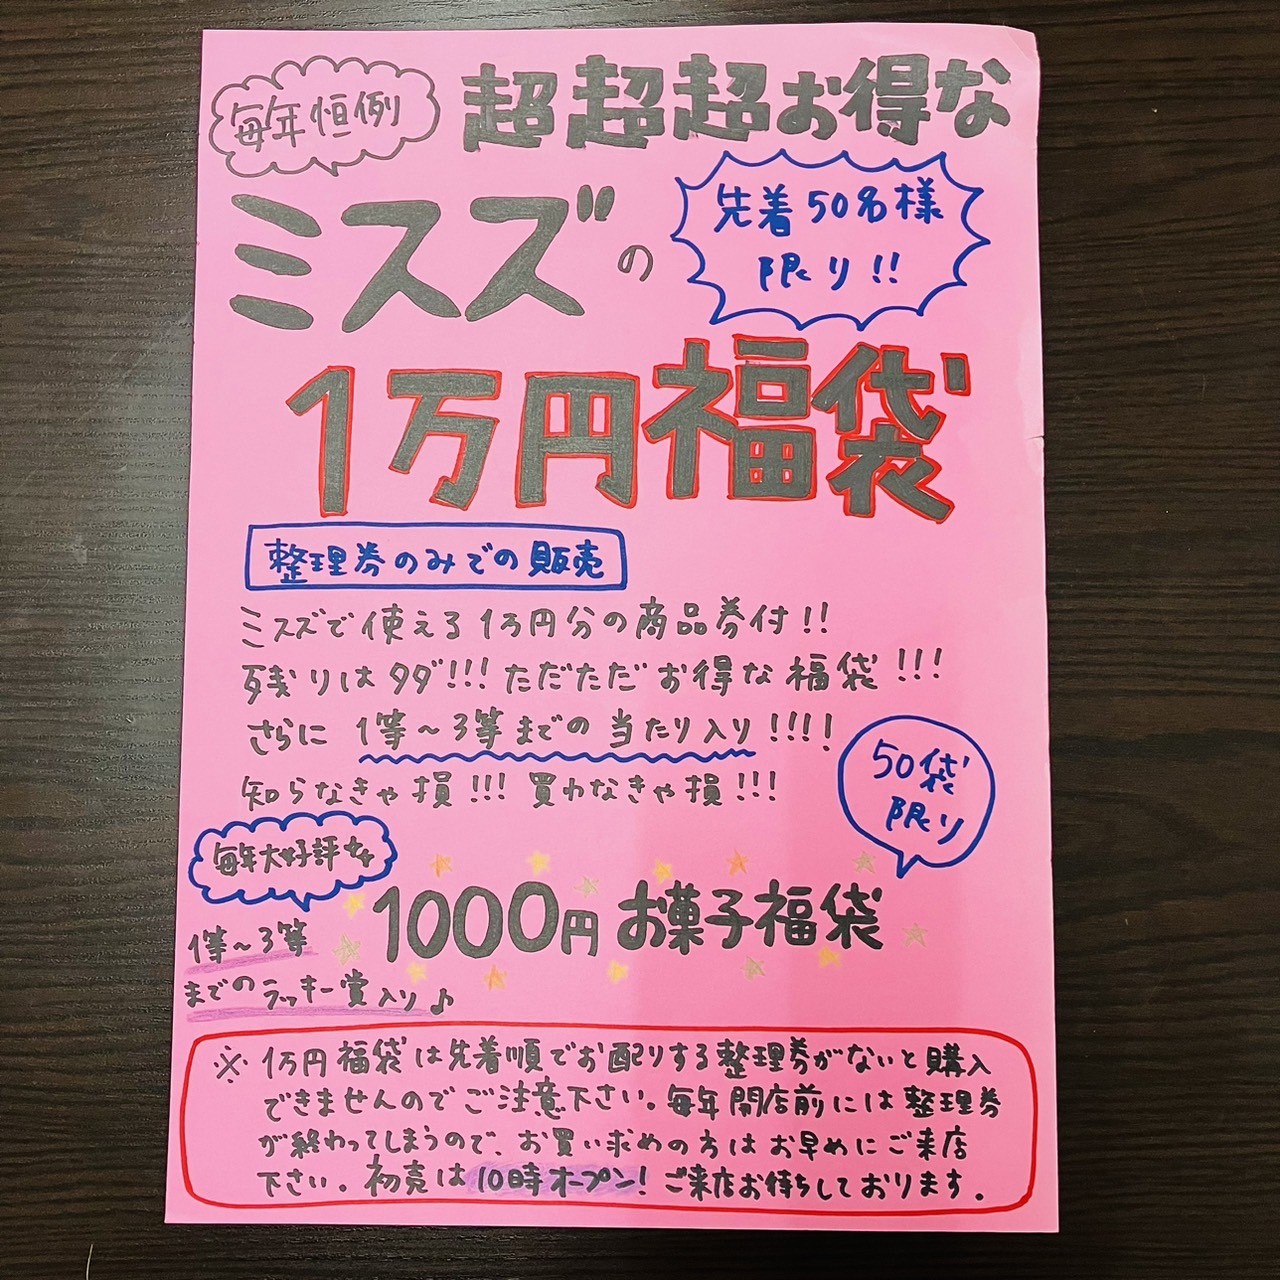 毎年恒例
超超超お得な
ミスズの
先着50名様
限り!!
1万円福袋
整理券のみでの販売
ミスズで使える1万円分の商品券付!!
残りはタダ!!!ただただお得な福袋!!!
さらに1等~3等までの当たり入り!!!!
知らなきゃ損!!!買わなきゃ損!!!
50袋
限り
毎年大好評な
1000円お菓子福袋
1等~3等
までのラッキー賞入り♪
※1万円福袋は先着順でお配りする整理券がないと購入
できませんのでご注意下さい。毎年開店前には整理券
が終わってしまうので、お買い求めの方はお早めにご来店
下さい。初売は10時オープン!ご来店お待ちしております。